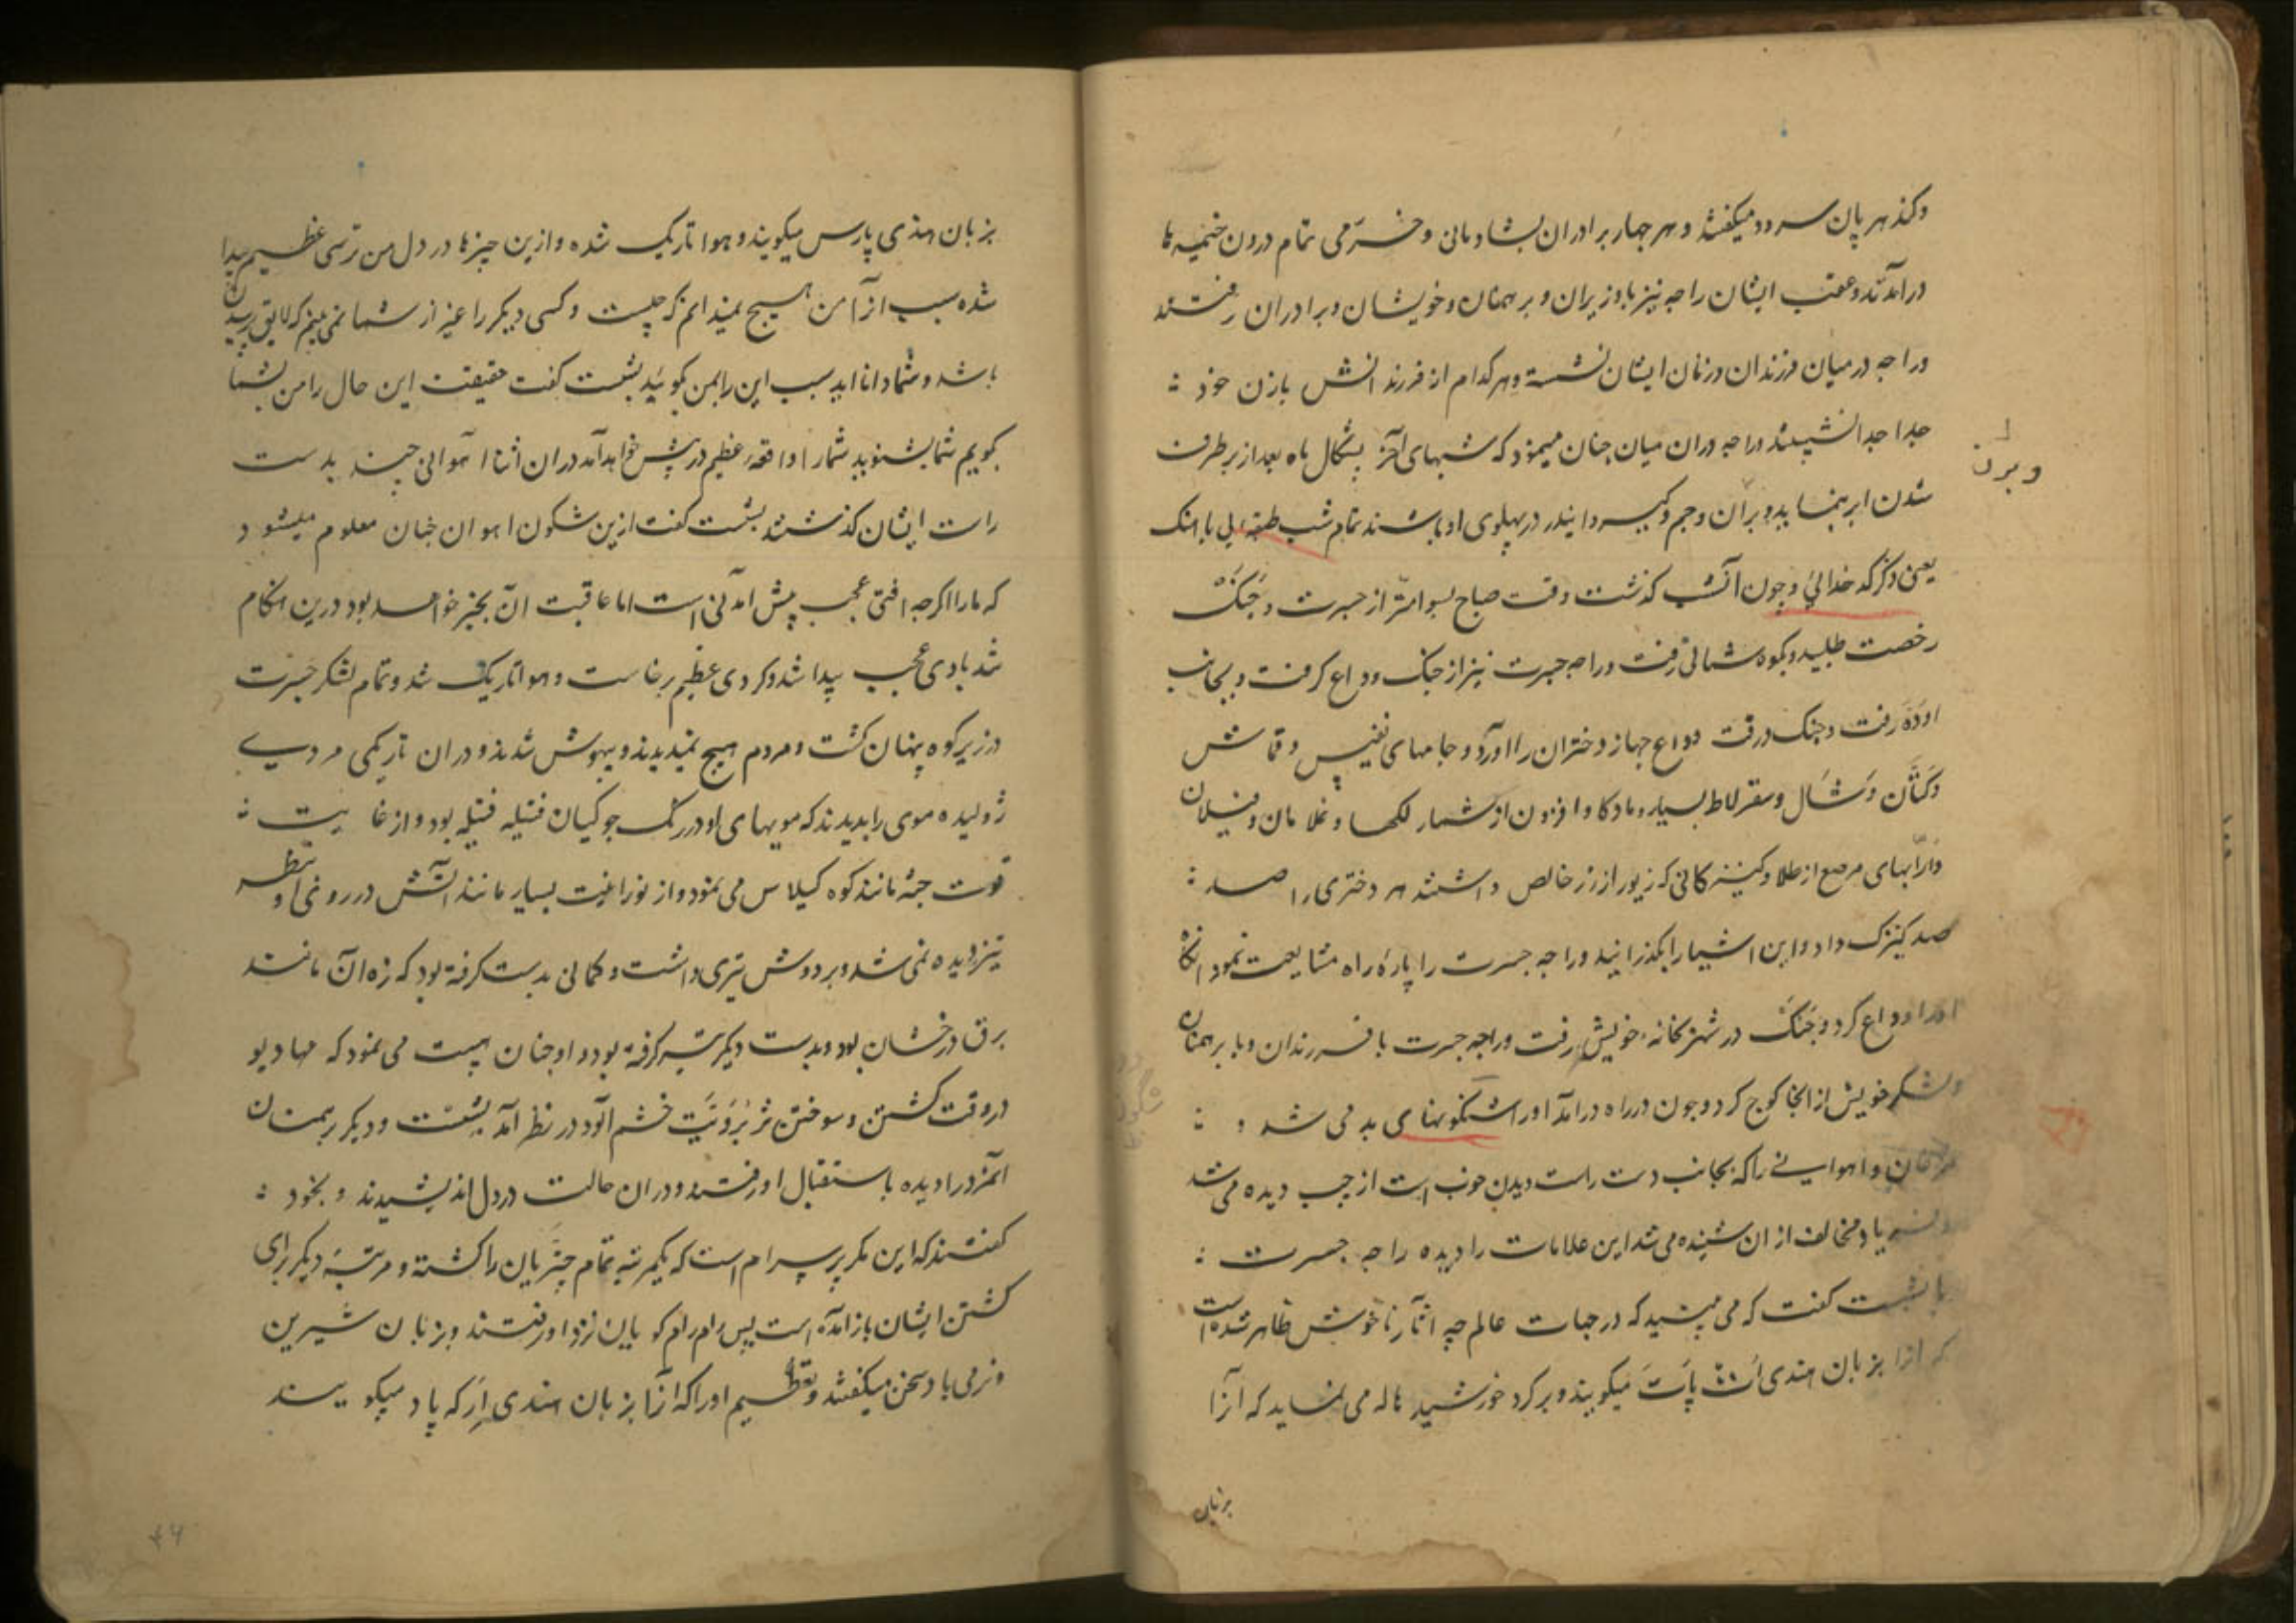 وکندهرپان سرود میکفتند و هر چهار برادران بشادمانی و خرمی تمام درون خیمه ها
درآمدند و عقب ایشان راجه نیز با وزیران و برهمنان و خویشان و برادران رفتند
و راجه در میان فرزندان و زنان ایشان نشسته و هر کدام از فرزندانش بازن خود
جدا جدا نشستند راجه دران میان چنان مینمود که شبهای آخر پشکال ماه بعد از برطرف
شدن ابر بنماید و بران وجم و کبیر و اندر در پهلوی او باشند تمام شب
یعنی ذکر کدخدائی و چون آنشب گذشت وقت صباح بسوامتر از جسرت و جنک
رخصت طلبید و بکوه شمالی رفت و راجه جسرت نیز از جنک وداع کرفت و بجانب
اوده رفت و جنک در وقت وداع جهاز دختران را آورد و جامهای نفیس و قماش
و کتان و شال و سقرلاط بسیار و مادکاو افزون از شمار لکها و غلامان و فیلان
و ارابهای مرصع از طلا و کنیزکانی که زیور از زر خالص داشتند هر دختری را صد
صد کنیزک داد و این اشیا را بگذرانید و راجه جسرت را پاره راه مشایعت نمود انکاه
اورا وداع کرد و جنک در شهر بخانه خویش رفت و راجه جسرت با فرزندان و با برهمنان
و لشکر خویش از انجا کوچ کرد و چون در راه درآمد اورا شکونهای بد می شد و
مرغان و اهوانی را که بجانب دست راست دیدن خوب است از چپ دیده می شد
و فریاد مخالف از ان شنیده می شد این علامات را دیده راجه جسرت
با بشست کفت که می بینید که در جهات عالم چه آثار ناخوش ظاهر شده است
که انرا بزبان هندی ات پات میکویند و بر کرد خورشید هاله می نماید که آنرا
بزبان
و برن
بزبان هندی پارس میکویند و هوا تاریک شده و ازین چیزها در دل من ترسی عظیم پیدا
شده سبب از آن من هیچ نمیدانم که چیست و کسی دیکر را غیر از شما نمی بینم که لایق پرسیدن
باشد و شما دانا اید سبب این را بمن بکوئید بشست کفت حقیقت این حال را من بشما
بکویم شما بشنوید شما را واقعه عظیم در پیش خواهد آمد دران اثنا آهوانی چند بدست
راست ایشان کذشتند بشست کفت ازین شکون اهوان چنان معلوم میشود
که ما را اکرچه افتی عجب پیش آمدنی است اما عاقبت آن بخیر خواهد بود درین هنکام
شد بادی عجب پیدا شد و کردی عظیم برخاست و هوا تاریک شد و تمام لشکر جسرت
در زیر کوه پنهان کشت و مردم هیچ نمیدیدند و بیهوش شدند و دران تاریکی مردی
ژولیده موی را بدیدند که مویهای او در رنک جوکیان فتیله فتیله بود و از غایت
قوت جثه مانند کوه کیلاس می نمود و از نورانیت بسیار مانند آتش در روی او نظر
تیز دیده نمی شد و بر دوش تبری داشت و کمانی بدست کرفته بود که زه آن مانند
برق درخشان بود و بدست دیکر تیر کرفته بود و او چنان بهیبت می نمود که مهادیو
در وقت کشتن و سوختن تربرونیت خشم آلود در نظر آمد بشست و دیکر برهمنان
آنمرد را دیده باستقبال او رفتند و دران حالت در دل اندیشیدند و بخود
کفتند که این مکر پرسرام است که یکمرتبه تمام چتریان را کشته و مرتبه دیکر برای
کشتن ایشان بازآمده است پس رام رام کویان نزد او رفتند و بزبان شیرین
و نرمی باو سخن میکفتند و تعظیم او را که آنرا بزبان هندی ارکه پاد میکویند